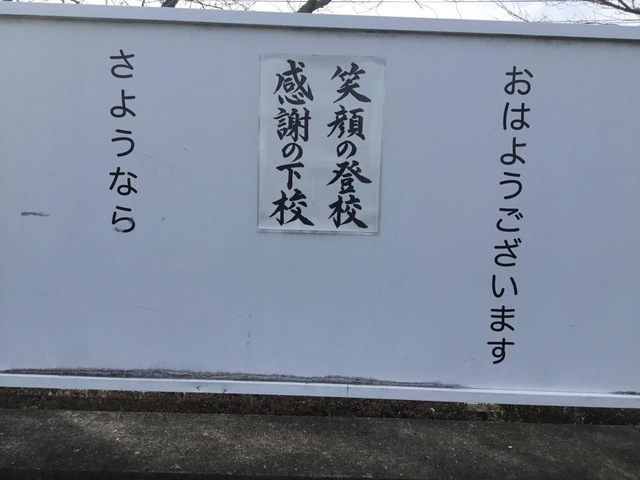 おはようございます
笑顔の登校
感謝の下校
さようなら